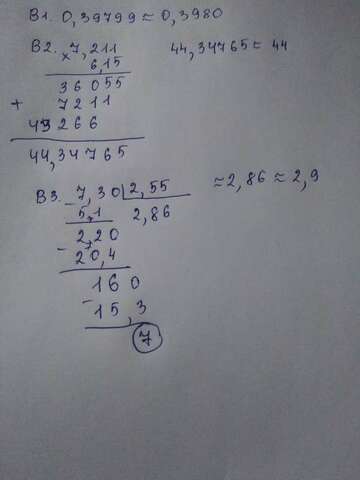 В1. 0,39799 ≈ 0,3980
В2. × 7,211 44,34765 ≈ 44
6,15
36055
+ 7211
43266
44,34765
В3. - 7,30 | 2,55 ≈ 2,86 ≈ 2,9
5,1 2,86
- 2,20
20,4
160
- 15,3
7